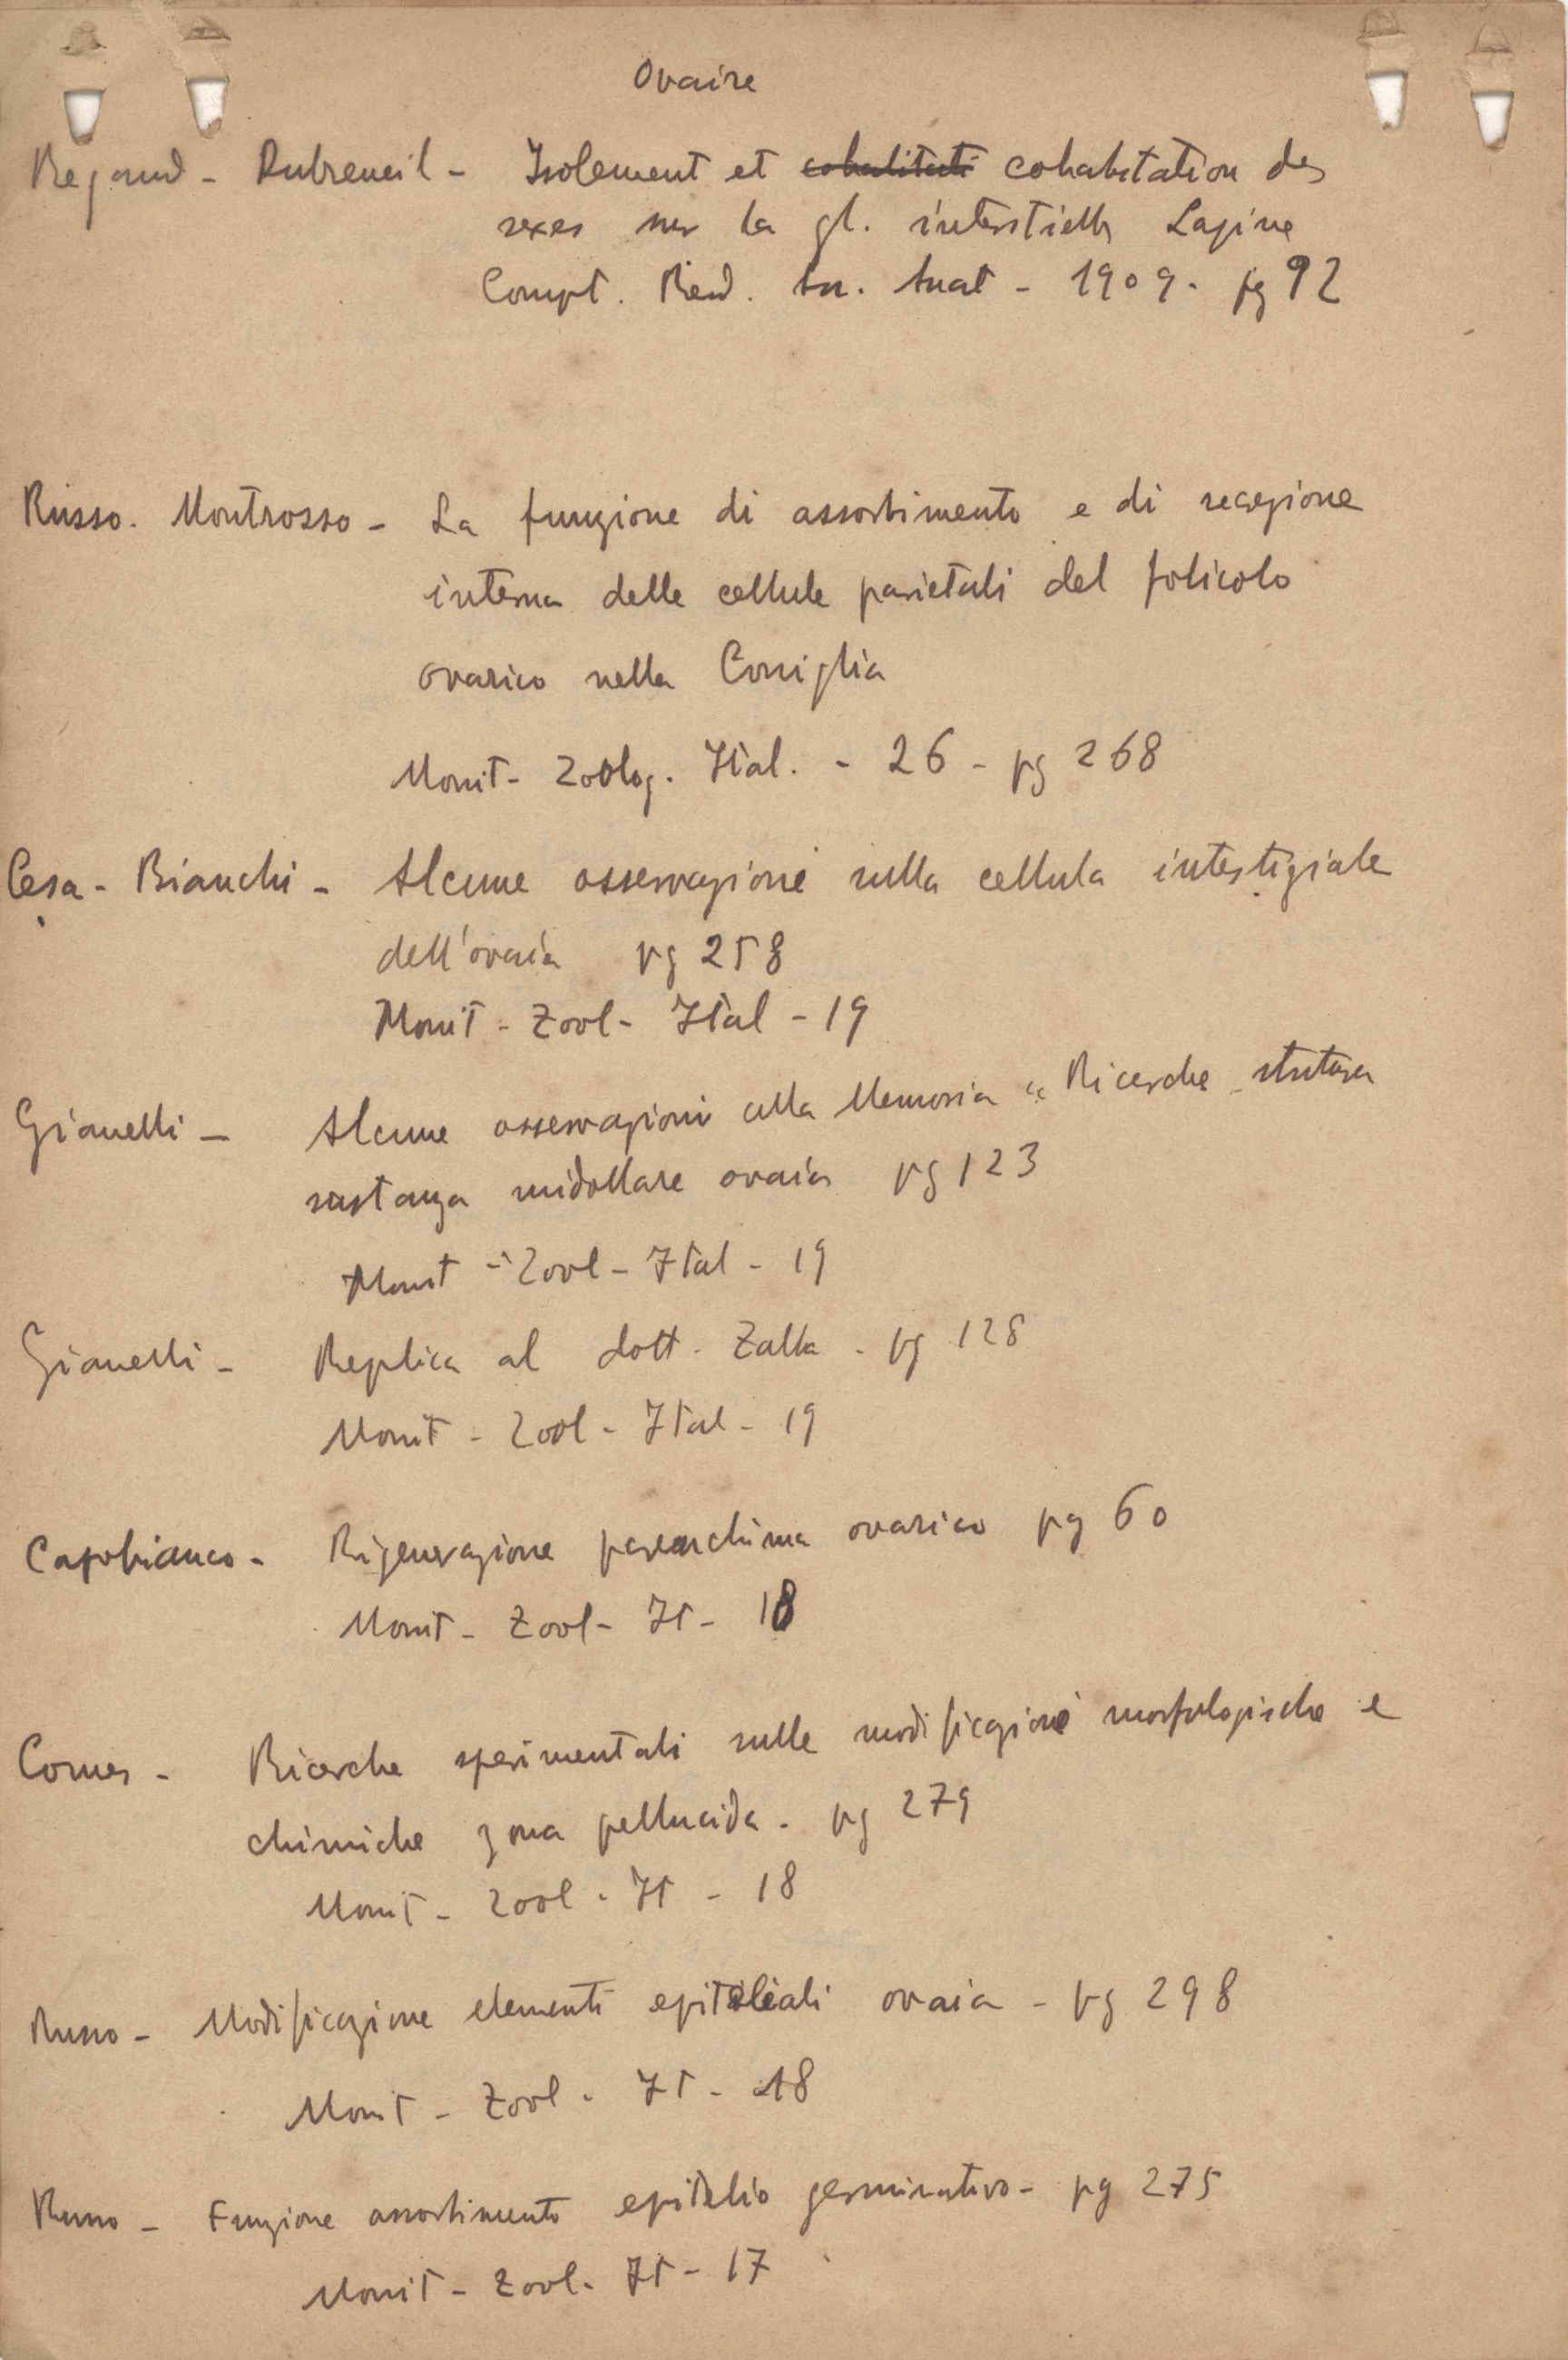 Ovaire
Regaud - Dubreuil - Isolement et cohabitati cohabitation des
sexes sur la gl. interstielle Lapine
Compt. Rend. Ass. Anat - 1909. pg 92
Russo. Montrosso - La funzione di assorbimento e di secezione
interna delle cellule parietali del folicolo
ovarico nella Coniglia
Monit - Zoolog. Ital. - 26 - pg 268
Cesa - Bianchi - Alcune osservazioni sulla cellula intestiziale
dell'ovaia pg 258
Monit - Zool - Ital - 19
Gianelli - Alcune osservazioni alla Memoria " Ricerche strutura
sustanza midollare ovaia pg 123
Monit - Zool - Ital - 19
Gianelli - Replica al dott. Zalla - pg 128
Monit - Zool - Ital - 19
Capobianco - Rigenerazione parenchima ovarico pg 60
Monit - Zool - It - 18
Comes - Ricerche sperimentali sulle modificazioni morfologische e
chimiche zona pellucida - pg 279
Monit - Zool - It - 18
Russo - Modificazione elementi epiteliali ovaia - pg 298
Monit - Zool - It - 18
Russo - Funzione assorbimento epitelio germinativo - pg 275
Monit - Zool - It - 17